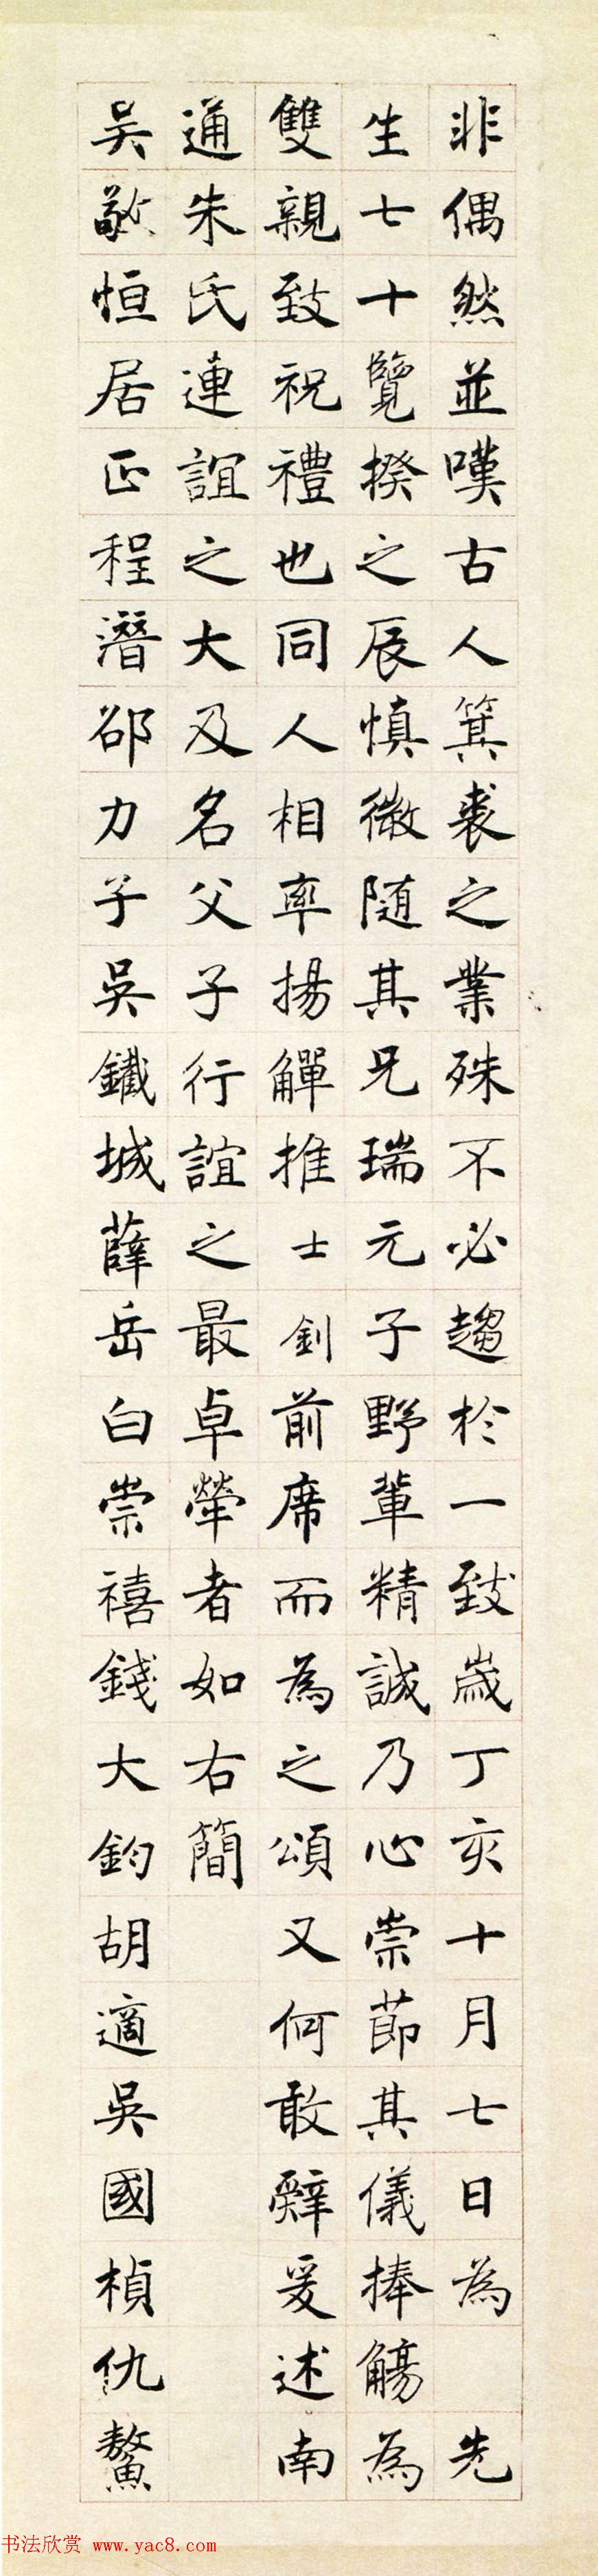 非偶然並嘆古人箕裘之業殊不必趨於一致歲丁亥十月七日為 先
生七十覽揆之辰慎微隨其兄瑞元子野輩精誠乃心崇節其儀捧觴為
雙親致祝禮也同人相率揚觶推士釗前席而為之頌又何敢辭爰述南
通朱氏連誼之大及名父子行誼之最卓犖者如右簡
吳敬恒居正程潛邵力子吳鐵城薛岳白崇禧錢大鈞胡適吳國楨仇鰲
书法欣赏 www.yac8.com